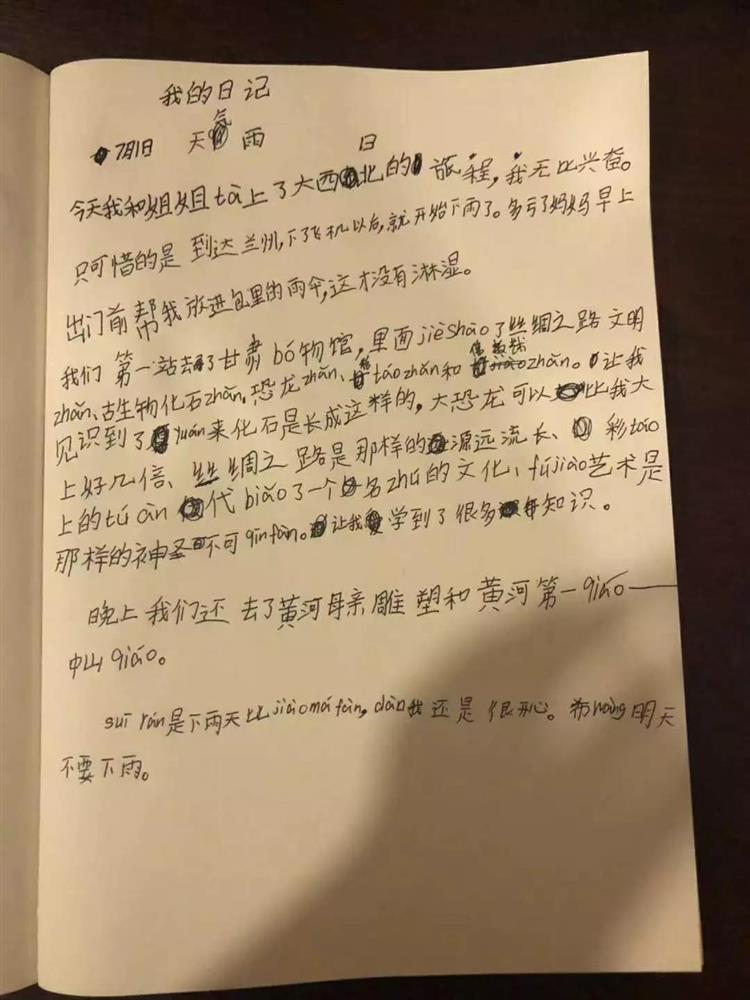 我的日记
7月1日 天气 雨 日
今天我和姐姐tà上了大西北的旅程，我无比兴奋。
只可惜的是 到达兰州，下了飞机以后，就开始下雨了。多亏了妈妈早上
出门前帮我放进包里的雨伞，这才没有淋湿。
我们第一站去了甘肃bó物馆，里面jièshào了丝绸之路文明
zhǎn、古生物化石zhǎn，恐龙zhǎn、彩táozhǎn和佛教艺术zhǎn。让我
见识到了yuán来化石是长成这样的，大恐龙可以比我大
上好几倍、丝绸之路是那样的源远流长、彩táo
上的tú àn代biǎo了一个名zhú的文化、fújiào艺术是
那样的神圣不可qīnfàn。让我学到了很多知识。
晚上我们还去了黄河母亲雕塑和黄河第一qiáo——
中山qiáo。
suī rán是下雨天比jiàomá fàn，dàn我还是很开心。希wàng明天
不要下雨。